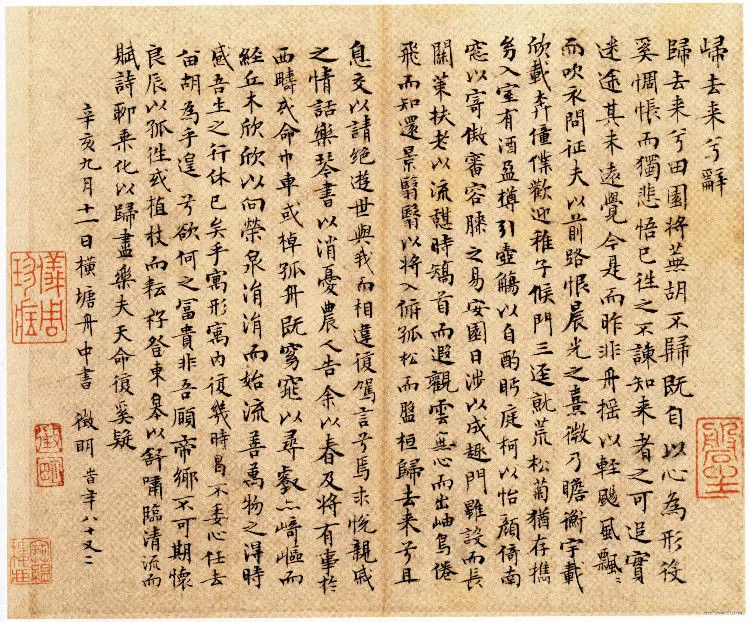 歸去来兮辭
歸去来兮田園将蕪胡不歸既自以心為形役
奚惆悵而獨悲悟已往之不諫知来者之可追實
迷途其未遠覺今是而昨非舟摇以輕颺風飄〻
而吹衣問征夫以前路恨晨光之熹微乃瞻衡宇載
欣載奔僮僕歡迎稚子候門三逕就荒松菊猶存攜
幼入室有酒盈樽引壺觴以自酌眄庭柯以怡顔倚南
窓以寄傲審容膝之易安園日涉以成趣門雖設而長
關策扶老以流憩時矯首而遐觀雲無心而出岫鳥倦
飛而知還景翳翳以将入俯孤松而盤桓歸去来兮且
息交以請絶遊世與我而相違復駕言兮焉求悅親戚
之情話樂琴書以消憂農人告余以春及将有事於
西疇或命巾車或棹孤舟既窈窕以尋壑亦崎嶇而
經丘木欣欣以向榮泉涓涓而始流善萬物之得時
感吾生之行休已矣乎寓形寓内復幾時曷不委心任去
留胡為乎遑兮欲何之冨貴非吾願帝鄉不可期懷
良辰以孤往或植杖而耘耔登東皋以舒嘯臨清流而
賦詩聊乗化以歸盡樂夫天命復奚疑
辛亥九月十一日横塘舟中書 徵明 旹年八十又二
停雲生
儀周珍藏
徵明